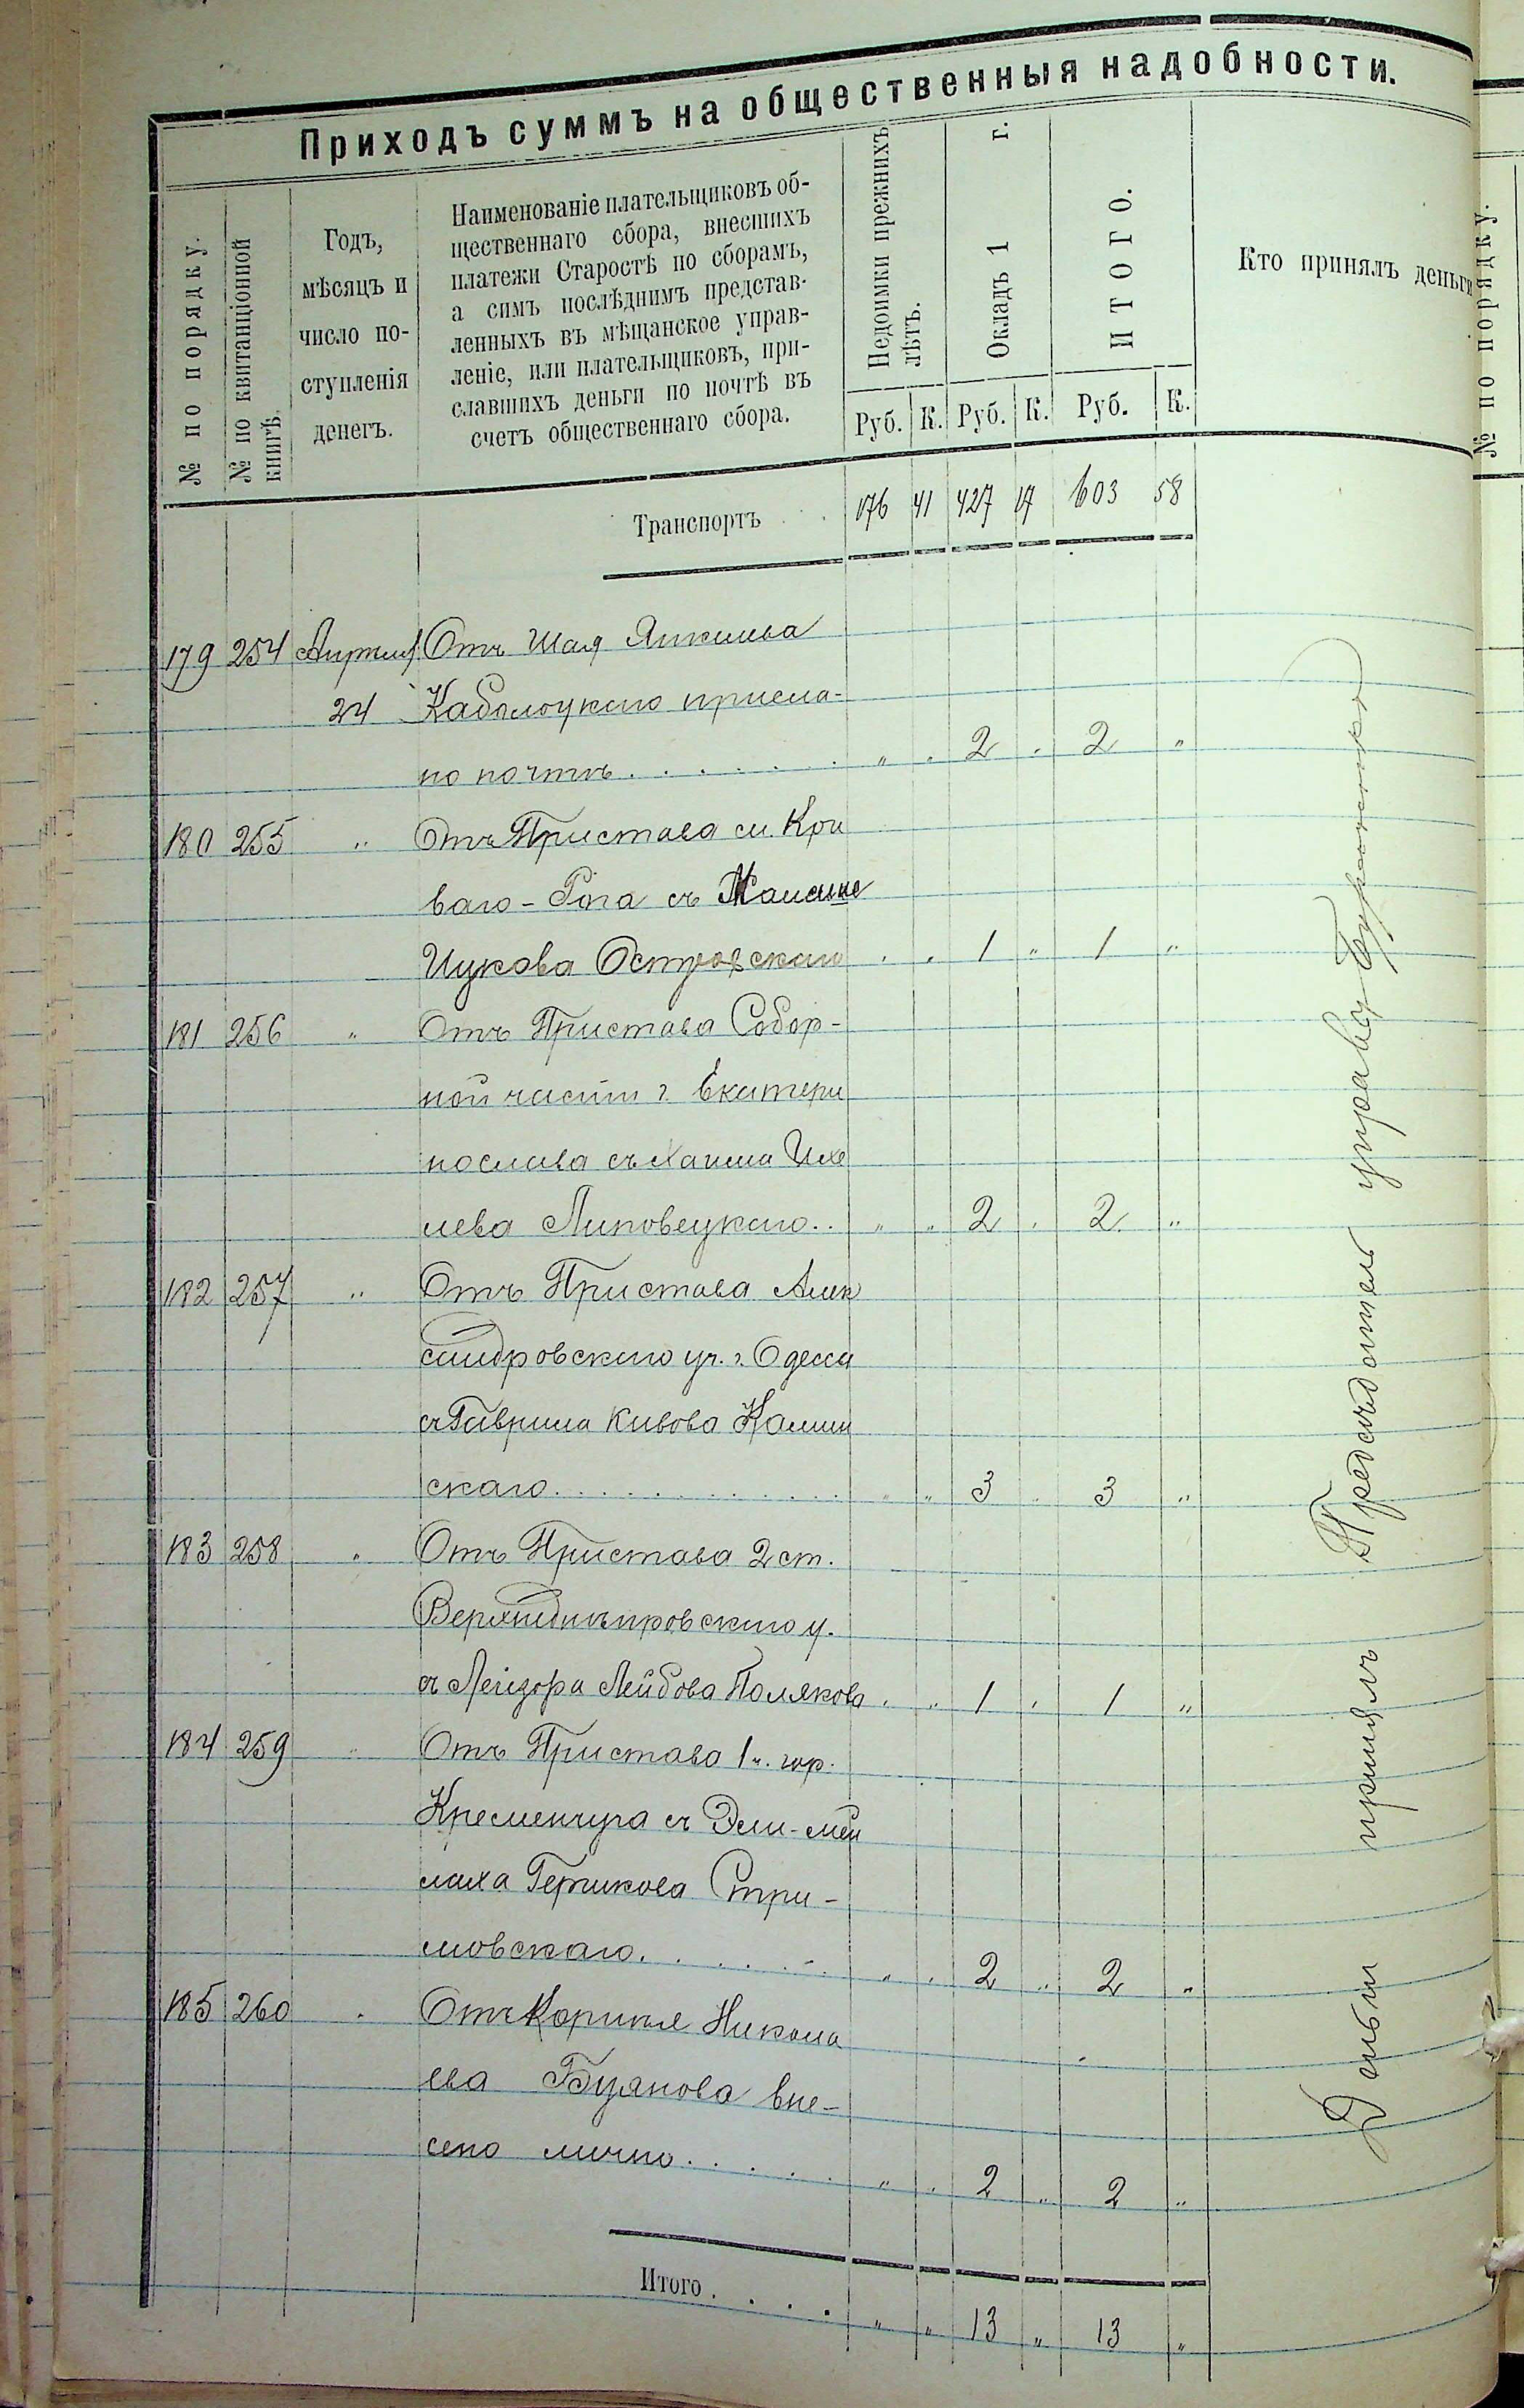 Приходъ суммъ на общественныя надобности.
№ по порядку.
№ по квитанціонной
книгѣ.
Годъ,
мѣсяцъ и
число по-
ступленія
денегъ.
Наименованіе плательщиковъ об-
щественнаго сбора, внесшихъ
платежи Старостѣ по сборамъ,
а симъ послѣднимъ представ-
ленныхъ въ мѣщанское управ-
леніе, или плательщиковъ, при-
славшихъ деньги по почтѣ въ
счетъ общественнаго сбора.
Недоимки прежнихъ
лѣтъ.
Окладъ 1 г.
ИТОГО.
Кто принялъ деньги
№ по порядку.
Руб. К. Руб. К. Руб. К.
Транспортъ 176 41 427 17 603 58
179 254 Апрѣля Отъ Шая Янкиева
24 Кабалоцкаго присла-
но почтѣ . . . . . . . „ „ 2 „ 2 „
180 255 „ Отъ Пристава м. Кри
ваго-Рога съ
Ицкова Островскаго „ „ 1 „ 1 „
181 256 „ Отъ Пристава Собор-
ной части г. Екатери
нослава съ Хаима Ихе
лева Липовецкаго . . „ „ 2 „ 2 „
182 257 „ Отъ Пристава Алек
сандровскаго уч. г. Одессы
съ Гаврила Кивова Камин
скаго . . . . . . . . . „ „ 3 „ 3 „
183 258 „ Отъ Пристава 2 ст.
Верхнеднѣпровскаго у.
съ Лейзора Лейбова Полякова „ „ 1 „ 1 „
184 259 „ Отъ Пристава 1 ч. гор.
Кременчуга съ Эли-Мей
лаха Гершкова Стри-
мовскаго . . . . . . . „ „ 2 „ 2 „
185 260 „ Отъ Корнея Никола
ева Буянова вне-
сено лично . . . . . „ „ 2 „ 2 „
Итого . . . . „ „ 13 „ 13 „
Деньги принялъ Предсѣдатель управы